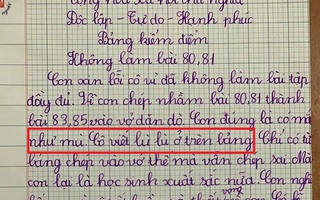 Cộng hòa xã hội chủ nghĩa
Độc lập - Tự do - Hạnh phúc
Bảng kiểm điểm
Không làm bài 80, 81
Con xin lỗi cô vì đã không làm bài tập
đầy đủ. Vì con chép nhầm bài 80,81 thành
bài 83,85 vào vở dặn dò. Con đúng là có mắt
như mù. Cô viết lù lù ở trên bảng. Chỉ có từ
bảng chép vào vở thế mà vẫn chép sai. Mà
con lại là học sinh xuất sắc nữa. Con nghĩ